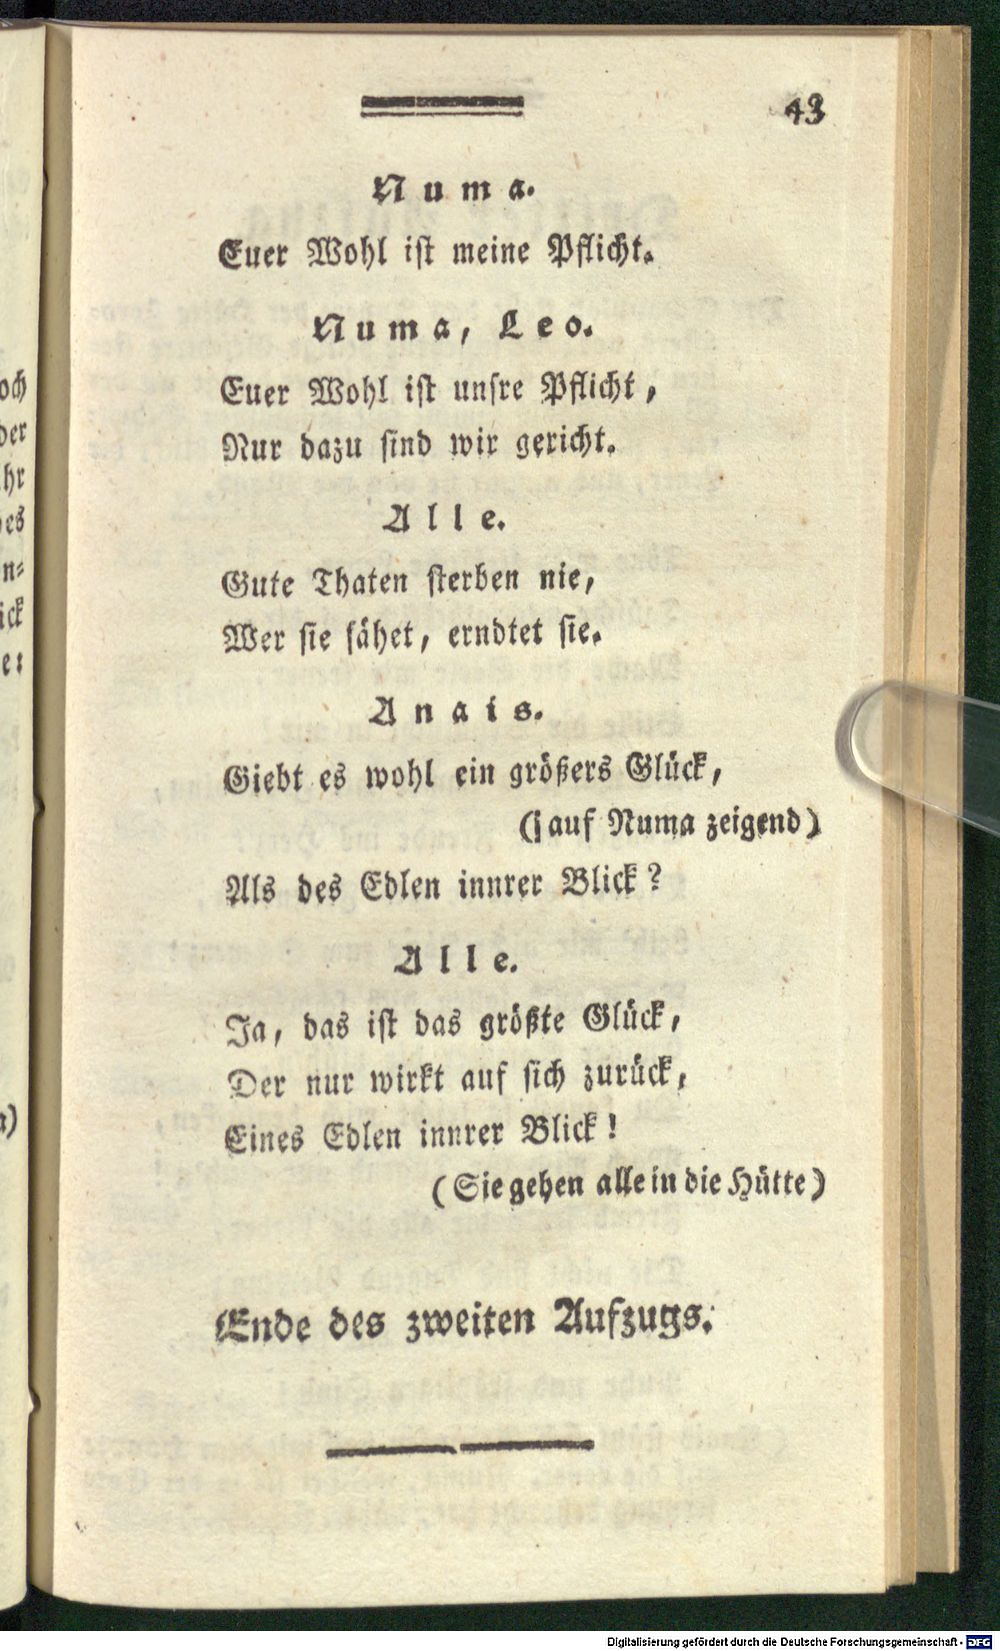 43
Numa.
Euer Wohl ist meine Pflicht.
Numa, Leo.
Euer Wohl ist unsre Pflicht,
Nur dazu sind wir gericht.
Alle.
Gute Thaten sterben nie,
Wer sie sähet, erndtet sie.
Anais.
Giebt es wohl ein größers Glück,
(auf Numa zeigend)
Als des Edlen innrer Blick?
Alle.
Ja, das ist das größte Glück,
Der nur wirkt auf sich zurück,
Eines Edlen innrer Blick!
(Sie gehen alle in die Hütte)
Ende des zweiten Aufzugs.
Digitalisierung gefördert durch die Deutsche Forschungsgemeinschaft - DFG